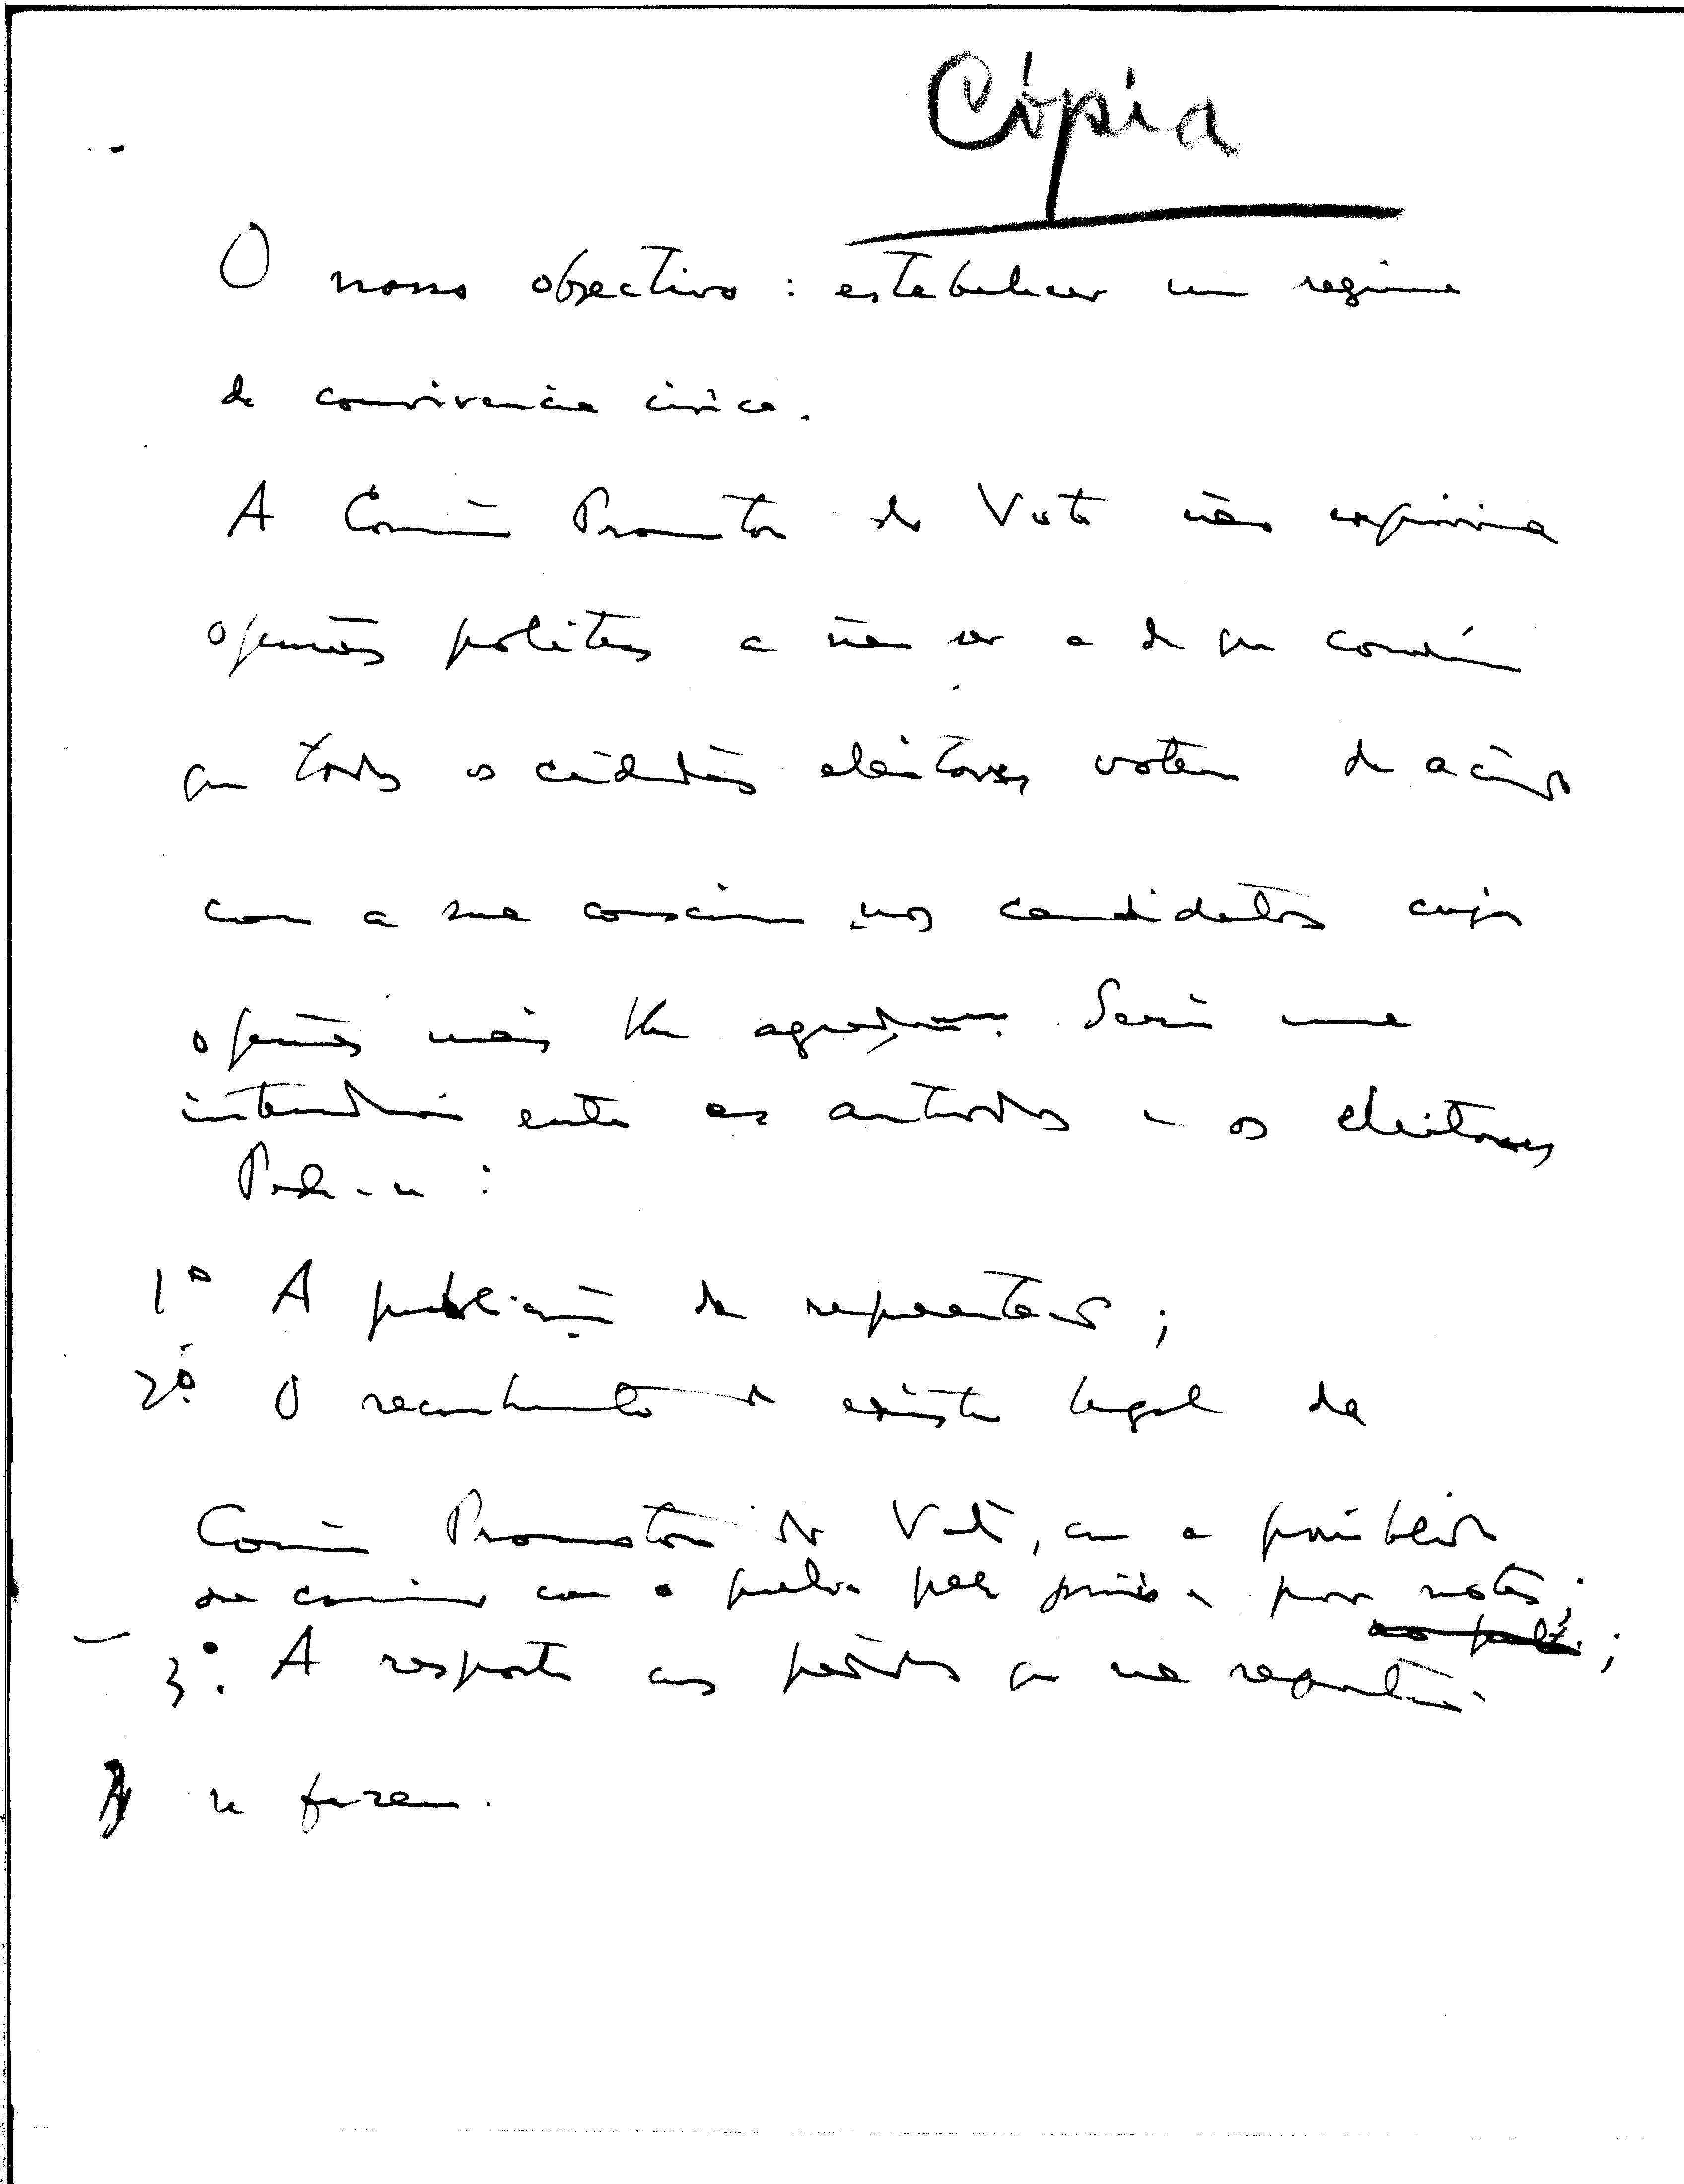 Cópia
O nosso objectivo: estabelecer um regime
de convivencia civica.
A Comissão Promotora do Voto não exprime
opiniões politicas a não ser a de que convém
que todos os cidadãos eleitores votem de acôrdo
com a sua consciencia nos candidatos cujas
opiniões mais lhe agradarem. Seria uma
intermediária entre as autoridades e os eleitores
Pede-se:
1º A publicação da representação;
2º. O reconhecimento da existencia legal da
Comissão Promotora do Voto, com a possibilidade
de comunicar com o publico pela e por notas;
3º. A resposta aos pedidos que na representação
se fazem.